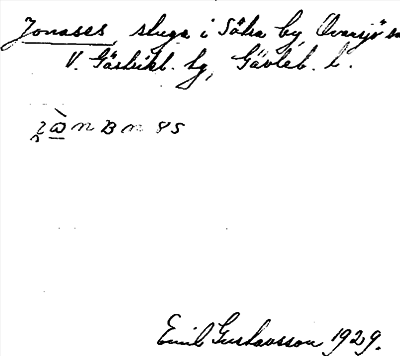 Jonases, stuga i Säka by, Ovansjö sn
V. Gästrikl. hg, Gävleb. l.
Emil Gustavsson 1929.